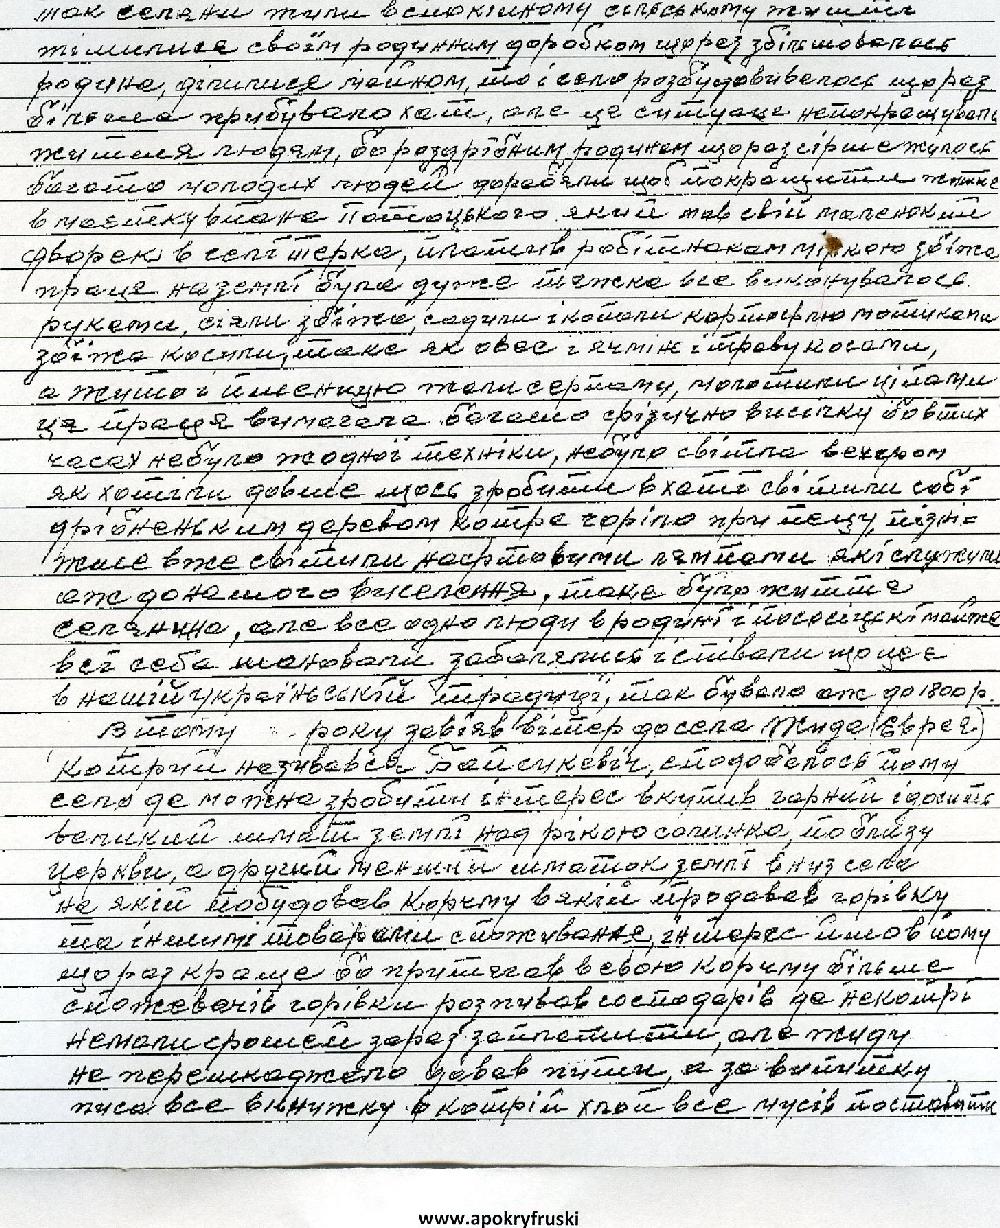 так селяни жили в спокійному сельському життю
тішилися своїм родинним доробком щораз збільшовалась
родина, ділилися майном, то і село розбудовивалось щораз
більша прибувало хат, але це ситуаце непокращувала
життя людям, бо роздрібним родинам щораз гірше жулось
багато молодих людей доробяли щоб покращити життє
в маєтку в пана Потоцького який мав свій маленький
дворек в селі терка, платив робітнюкам міркою збіжа
праце на землі була дуже тяжка все виконувалось
руками, сіяли збіжа, садили і копали картофлю мотиками
збіжа косили, таке як овес і ячмін і траву косами,
а жито і пшеницю жали серпаму, молотили ціпами
ця праця вимагала багато фізично висілку бо в тих
часах небуло жодної техніки, небуло світла вечером
як хотіли довше щось зробити в хаті світили собі
дрібненьким деревом котре горіло при пецу, пізні=
жише вже світили нафтовими лямпами які служили
аж до нашого виселення, таке було життє
селянина, але все одно люди в родині і пососіцкі майже
всі себа шановали забавлялись і співали що це є
в нашій українській традиції, так бувало аж до 1800 р.
В тому року завіяв вітер до села Жида (Єврея)
Котрий називався Байсикевіч, сподобалось йому
село де можна зробити інтерес вкупив гарний і досить
великий шмат землі над рікою солинка, поблизу
церкви, а другий менший шматок землі в низ села
на якій побудовав Корчму в якій продавав горівку
та іншимі товарами споживаннє, інтерес йшов йому
щораз краще бо притягав в свою корчму більше
споживачів горівки розпивав господарів де некотрі
немали грошей зараз заплатити, але жиду
не перешкаджало давав пити, а за випитку
писа все в книжку в котрій хлоп все мусів поставити
www.apokryfruski